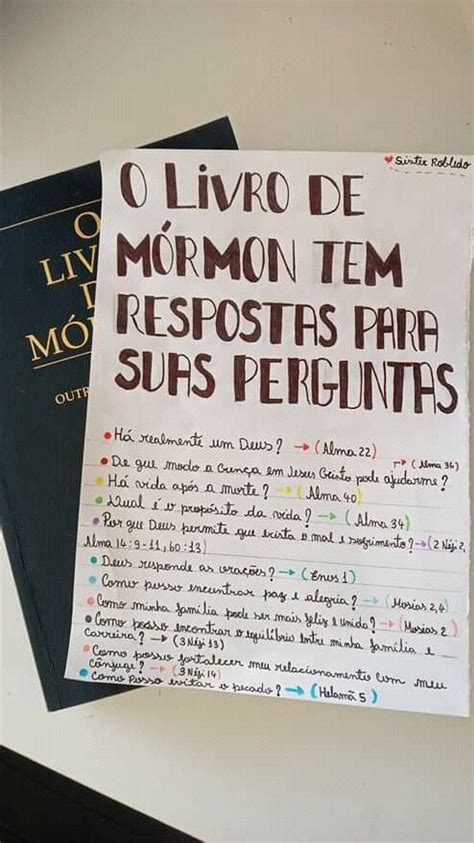 ♥ Sister Robledo
O LIVRO DE
MÓRMON TEM
RESPOSTAS PARA
SUAS PERGUNTAS
• Há realmente um Deus? → (Alma 22)
• De que modo a crença em Jesus Cristo pode ajudarme? → (Alma 36)
• Há vida após a morte? → (Alma 40)
• Qual é o propósito da vida? → (Alma 34)
• Por que Deus permite que exista o mal e sofrimento? → (2 Néfi 2,
Alma 14:9-11, 60:13)
• Deus responde as orações? → (Enos 1)
• Como posso encontrar paz e alegria? → (Mosias 2,4)
• Como minha família pode ser mais feliz e unida? → (Mosias 2)
• Como posso encontrar o equilíbrio entre minha família e
carreira? → (3 Néfi 13)
• Como posso fortalecer meu relacionamento com meu
cônjuge? → (3 Néfi 14)
• Como Posso evitar o pecado? → (Helamã 5)
O
LIV
D
MÓ
OUTR